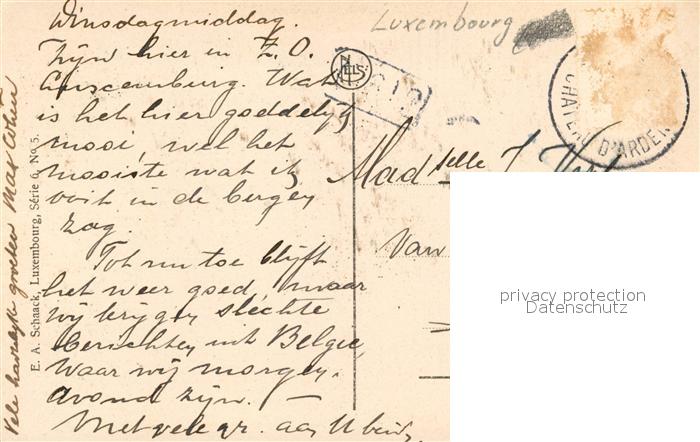 Dinsdagmiddag.
Zijn hier in Z.O.
Luxemburg. Wat
is het hier goddelijk
mooi, wel het
mooiste wat ik
ooit in de bergen
zag.
Tot nu toe blijft
het weer goed, maar
wij krijgen slechte
berichten uit België,
waar wij morgen-
avond zijn.
Met vele gr. aan U beide,
Vele hartelijke groeten Max Cohen
E. A. Schaack, Luxembourg, Série 6, No 5.
NELS
Luxembourg
CHATEAU D'ARDEN
Madselle J.
Van
privacy protection
Datenschutz